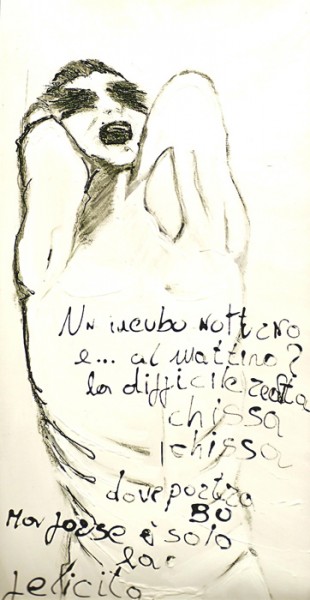 Un incubo notturno
e... al mattino?
la difficile realta
chissa
chissa
dove porterà
BO
Ma forse è solo
la
felicità